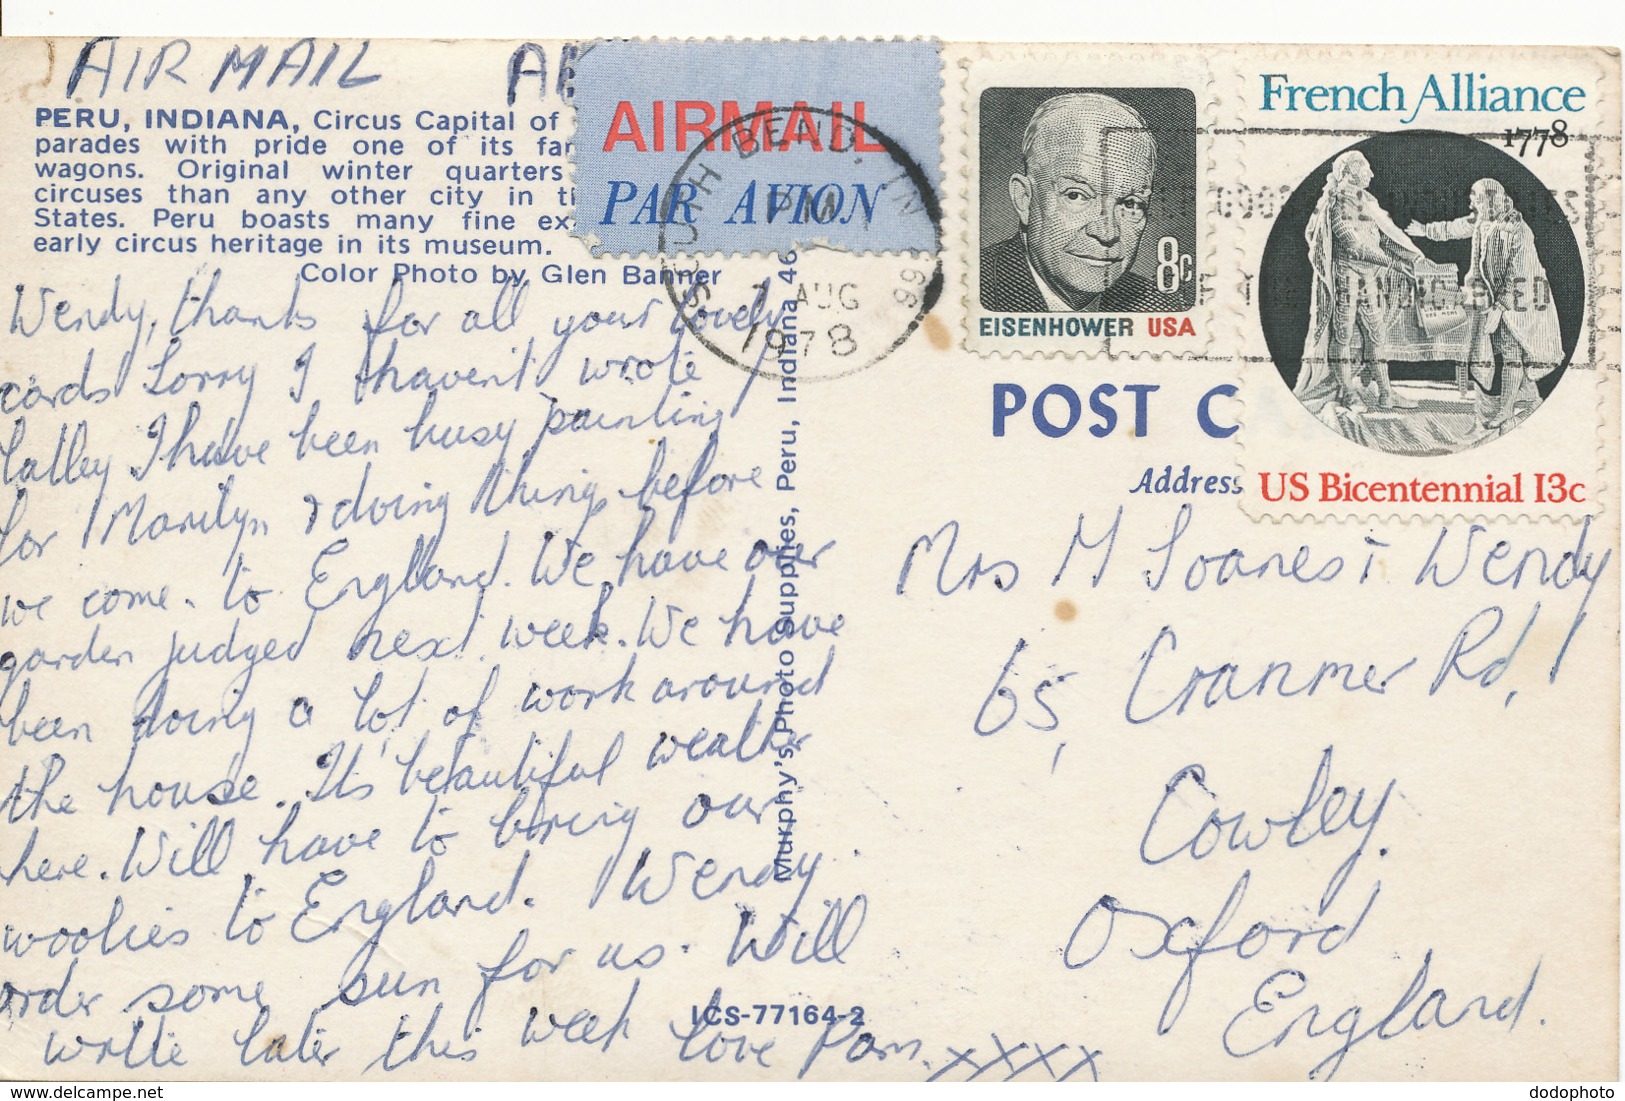 AIR MAIL
PERU, INDIANA, Circus Capital of
parades with pride one of its
wagons. Original winter quarters
circuses than any other city in
States. Peru boasts many fine
early circus heritage in its museum.
Color Photo by Glen Banner
AIRMAIL
PAR AVION
SOUTH BEND, IN
PM
7 AUG
1978
EISENHOWER USA
8c
French Alliance
1778
US Bicentennial 13c
POST
Address
Wendy, thanks for all your lovely
cards Sorry I haven't wrote
I have been busy painting
for Marilyn & doing things before
we come to England. We have our
garden judged next week. We have
been doing a lot of work around
the house. Its beautiful weather
here. Will have to bring our
woolies to England. Wendy
order some sun for us. Will
write later this week love Pam. xxxx
Mrs M Soanes & Wendy
65, Cranmer Rd,
Cowley.
Oxford
England.
Murphy's Photo Supplies, Peru, Indiana 46
ICS-77164-2
delcampe.net
dodophoto